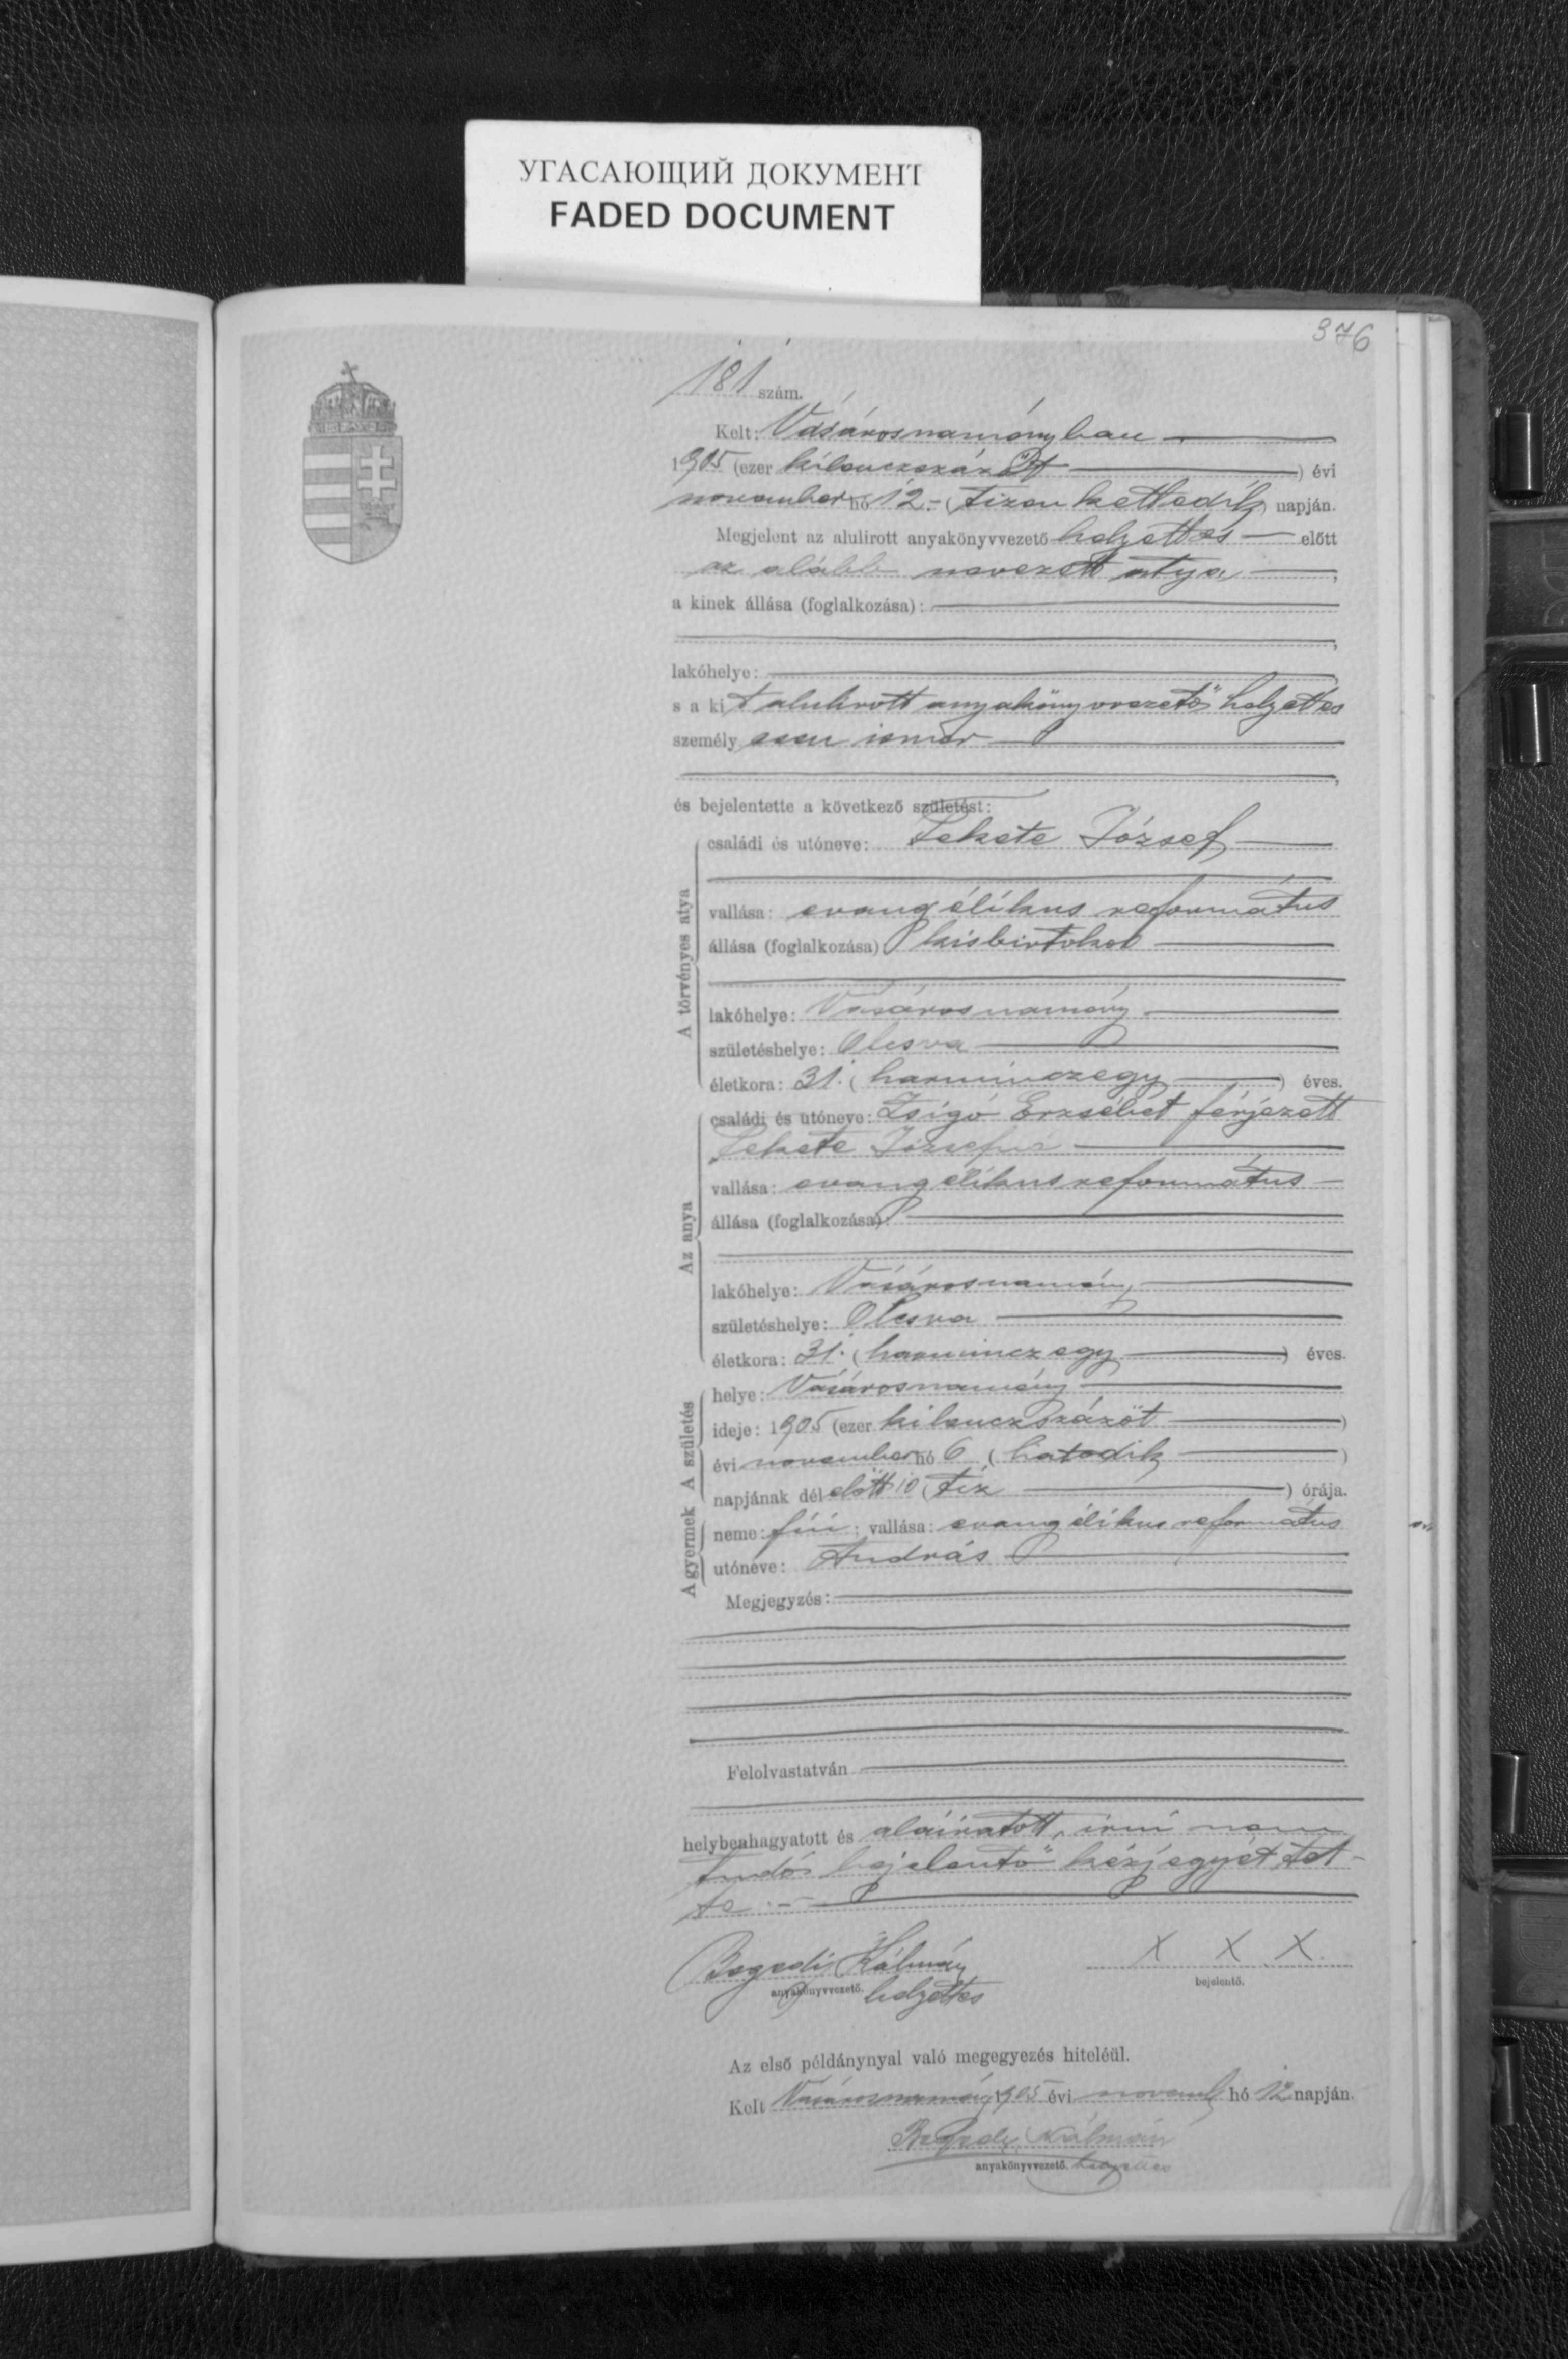 УГАСАЮЩИЙ ДОКУМЕНТ
FADED DOCUMENT
376
181 szám.
Kelt: Vásárosnaményban
1905 (ezer kilenczszáz öt) évi
november hó 12.- (tizenkettedik) napján.
Megjelent az alulirott anyakönyvvezető helyettes előtt
az alább nevezett atya,
a kinek állása (foglalkozása):
lakóhelye:
s a kit alulirott anyakönyvvezető helyettes
személyesen ismer
és bejelentette a következő születést:
A törvényes atya
családi és utóneve: Fekete József
vallása: evangélikus református
állása (foglalkozása): kisbirtokos
lakóhelye: Vásárosnamény
születéshelye: Olcsva
életkora: 31. (harminczegy) éves.
Az anya
családi és utóneve: Zsigó Erzsébet férjezett
Fekete Józsefné
vallása: evangélikus református
állása (foglalkozása):
lakóhelye: Vásárosnamény
születéshelye: Olcsva
életkora: 31. (harminczegy) éves.
A születés
helye: Vásárosnamény
ideje: 1905 (ezer kilenczszázöt)
évi november hó 6 (hatodik)
napjának délelőtt 10 (tíz) órája.
A gyermek
neme: fiú; vallása: evangélikus református
utóneve: András
Megjegyzés:
Felolvastatván
helybenhagyatott és aláiratott, irni nem
tudó bejelentő kézjegyét tet-
te.-
Kálmán X X X
anyakönyvvezető. helyettes bejelentő.
Az első példánynyal való megegyezés hiteléül.
Kelt Vásárosnamény 1905 évi novemb hó 12 napján.
Kálmán
anyakönyvvezető. helyettes